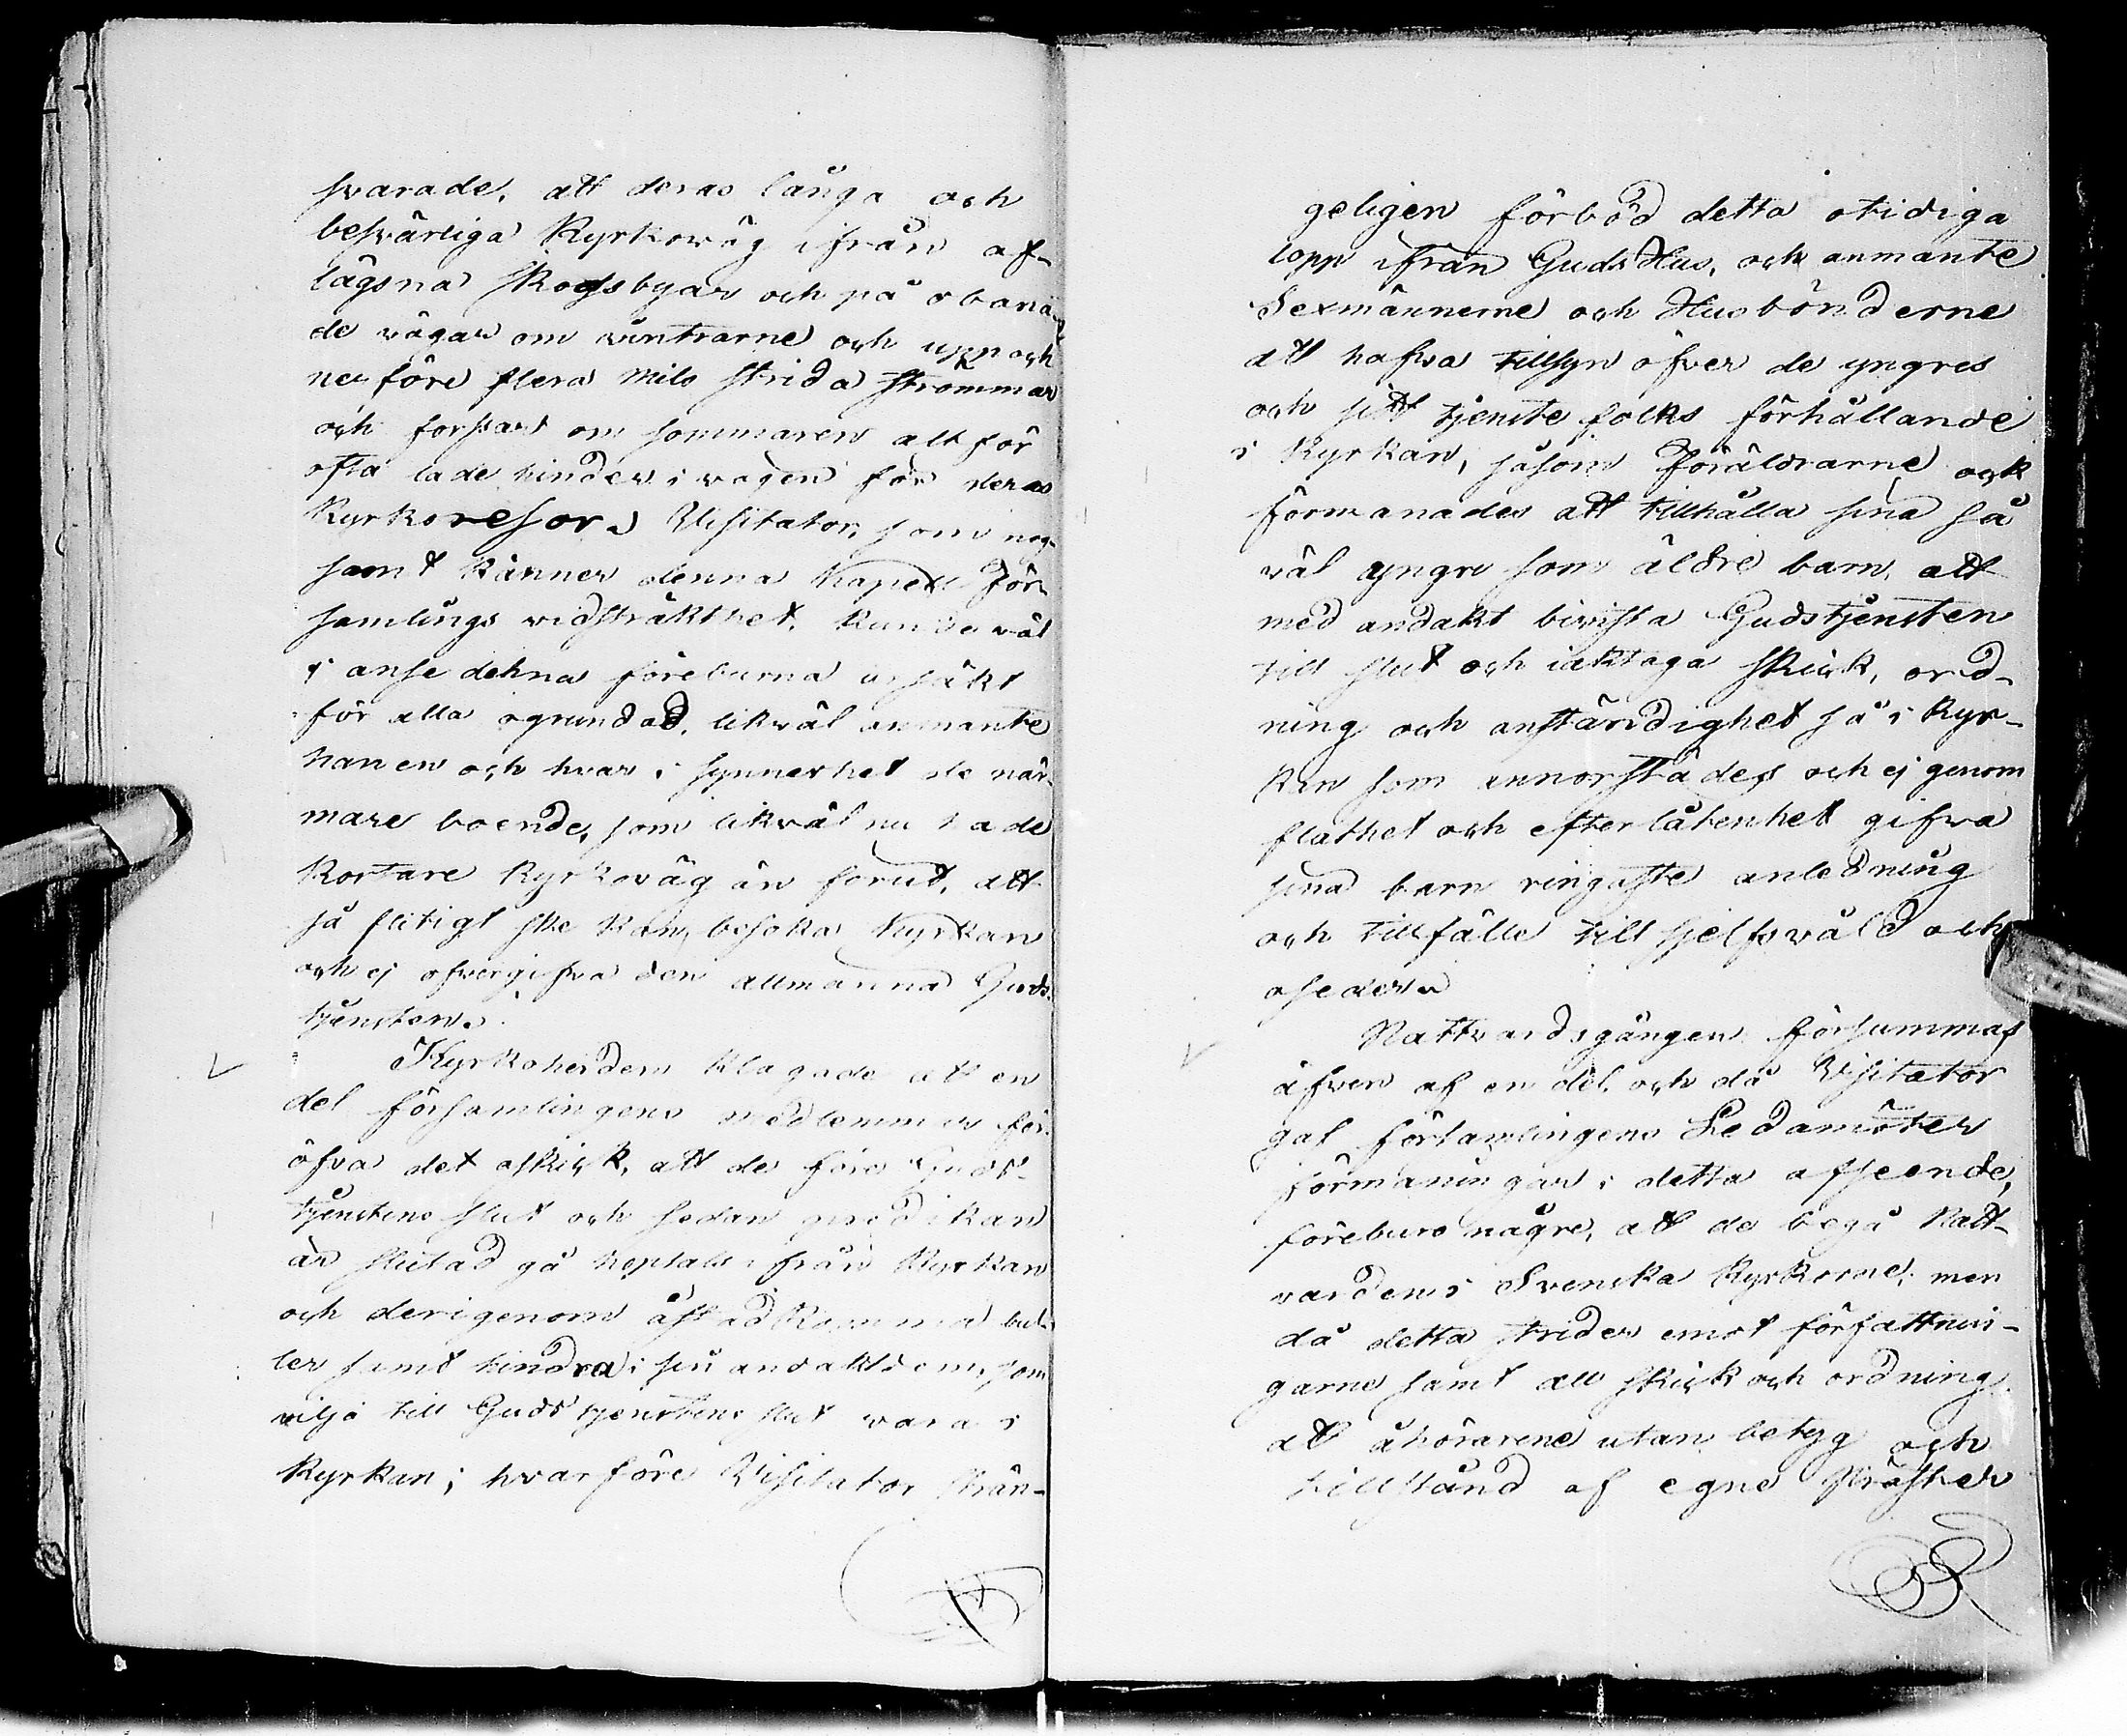 svarade, att deras långa och
besvärliga Kyrkoväg ifrån af-
lägsna Skogsbyar och på obana-
de vägar om vintrarne och upp och
nerföre flera mils strida strömmar
och forssar om sommaren alt för
ofta lade hinder i vägen för deras
Kyrkoresor. Visitator, som nog-
samt känner denna Kapell För-
samlings vidsträkthet, kunde väl
ej anse denna föreburna orsäkt
för alla ogrundad, likväl anmante
han en och hvar i synnerhet de när-
mare boende, som likväl nu hade
Kortare Kyrkoväg än förut, att
så flitigt ske kan, besöka Kyrkan
och ej öfvergifva den allmänna Guds-
tjensten.
Kyrkoherden klagade att en
del församlingens medlemmar för-
öfva det oskick, att de före Guds-
tjenstens slut och sedan predikan
är slutad gå hoptals ifrån Kyrkan
och derigenom åstadkomma bul-
ler samt hindra i sin andakt dem, som
vilja till Gudstjenstens slut vara i
Kyrkan; hvarföre Visitator strän-
geligen förböd detta otidiga
lopp ifrån Guds Hus, och anmante
Sexmännerne och Husbönderne
att hafva tillsyn öfver de yngres
och sitt tjenste folks förhållande
i Kyrkan, såsom Föräldrarne ock
förmanades att tillhålla sina så
väl yngre som äldre barn, att
med andakt bivista Gudstjensten
till slut och iakttaga skick, ord-
ning och anständighet så i Kyr-
kan som annorstädes och ej genom
flathet och efterlåtenhet gifva
sina barn ringaste anledning
och tillfälle till sjelfsvåld och
oseder.
Nattvardsgången försummas
äfven af en del, och då Visitator
gaf församlingens Ledamöter
förmaningar i detta afseende,
föreburo någre, att de begå Natt-
varden i Svenska Kyrkorne; men
då detta strider emot författnin-
garne samt all skick och ordning,
att åhörarene utan betyg och
tillstånd af egne Präster